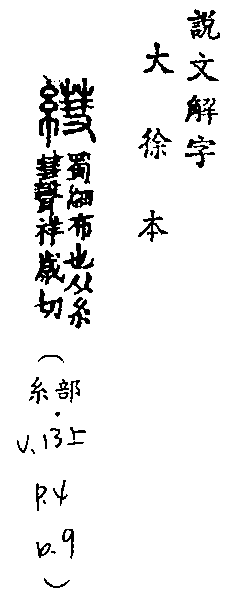 説文解字
大徐本
䌨
蜀細布也从糸
彗聲祥歲切
(糸部.
V.13上
P.4
b.9
)